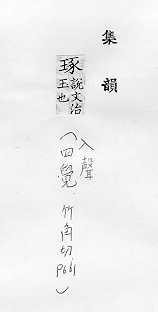 集韻
琢 說文治
玉也
入聲
(四覺 竹角切 P661)